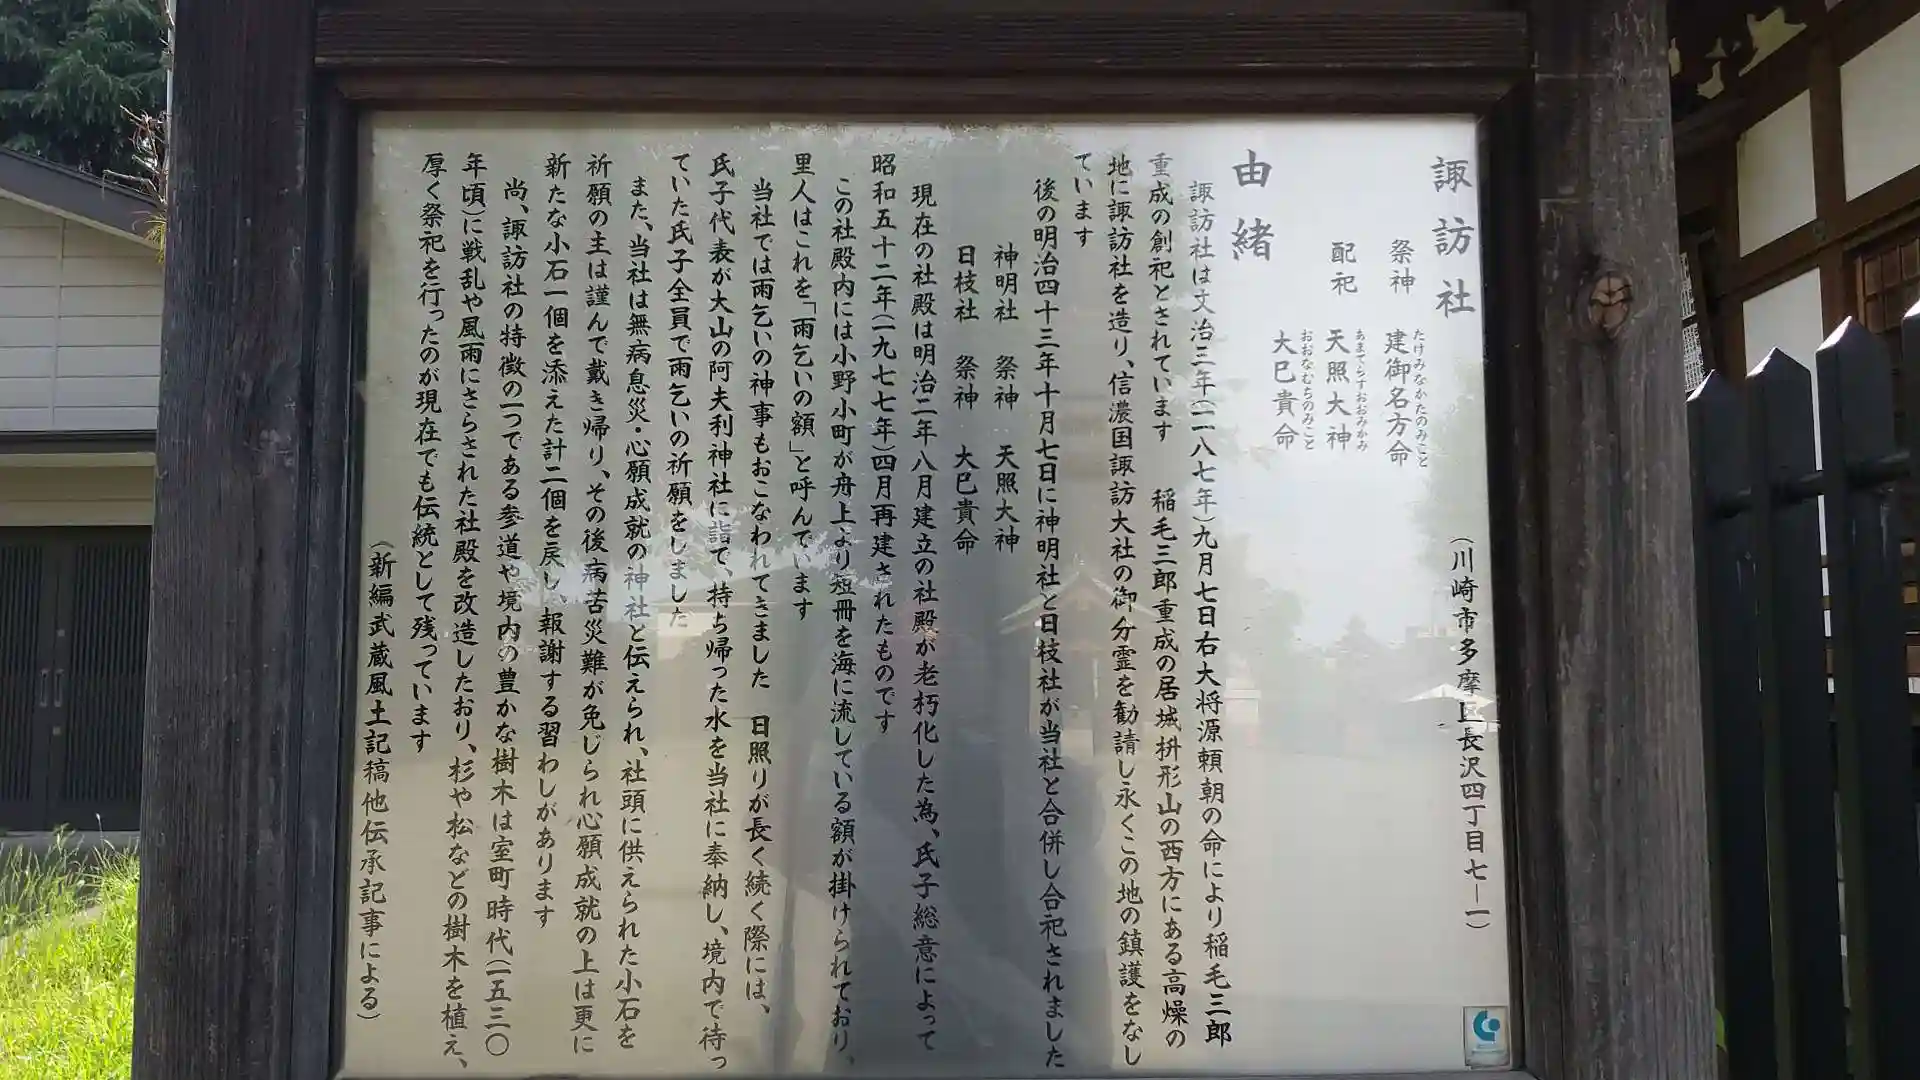 諏訪社
（川崎市多摩区長沢四丁目七－一）
祭神　建御名方命
たけみなかたのみこと
配祀　天照大神
あまてらすおおみかみ
大巳貴命
おおなむちのみこと
由緒
諏訪社は文治三年（一一八七年）九月七日右大将源頼朝の命により稲毛三郎
重成の創祀とされています　稲毛三郎重成の居城枡形山の西方にある高燥の
地に諏訪社を造り、信濃国諏訪大社の御分霊を勧請し永くこの地の鎮護をなし
ています
後の明治四十三年十月七日に神明社と日枝社が当社と合併し合祀されました
神明社　祭神　天照大神
日枝社　祭神　大巳貴命
現在の社殿は明治二年八月建立の社殿が老朽化した為、氏子総意によって
昭和五十二年（一九七七年）四月再建されたものです
この社殿内には小野小町が舟上より短冊を海に流している額が掛けられており、
里人はこれを「雨乞いの額」と呼んでいます
当社では雨乞いの神事もおこなわれてきました　日照りが長く続く際には、
氏子代表が大山の阿夫利神社に詣で、持ち帰った水を当社に奉納し、境内で待っ
ていた氏子全員で雨乞いの祈願をしました
また、当社は無病息災・心願成就の神社と伝えられ、社頭に供えられた小石を
祈願の主は謹んで戴き帰り、その後病苦災難が免じられ心願成就の上は更に
新たな小石一個を添えた計二個を戻し、報謝する習わしがあります
尚、諏訪社の特徴の一つである参道や境内の豊かな樹木は、室町時代（一五三〇
年頃）に戦乱や風雨にさらされた社殿を改造したおり、杉や松などの樹木を植え、
厚く祭祀を行ったのが現在でも伝統として残っています
（新編武蔵風土記稿他伝承記事による）